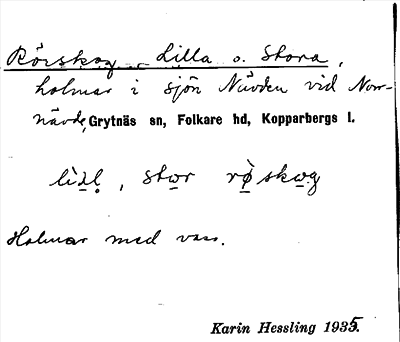 Rörskog, Lilla o. Stora,
holmar i sjön Nävden vid Norr-
nävde, Grytnäs sn, Folkare hd, Kopparbergs l.
lìḷḷ, stor rø̀skog
Holmar med vass.
Karin Hessling 1935.